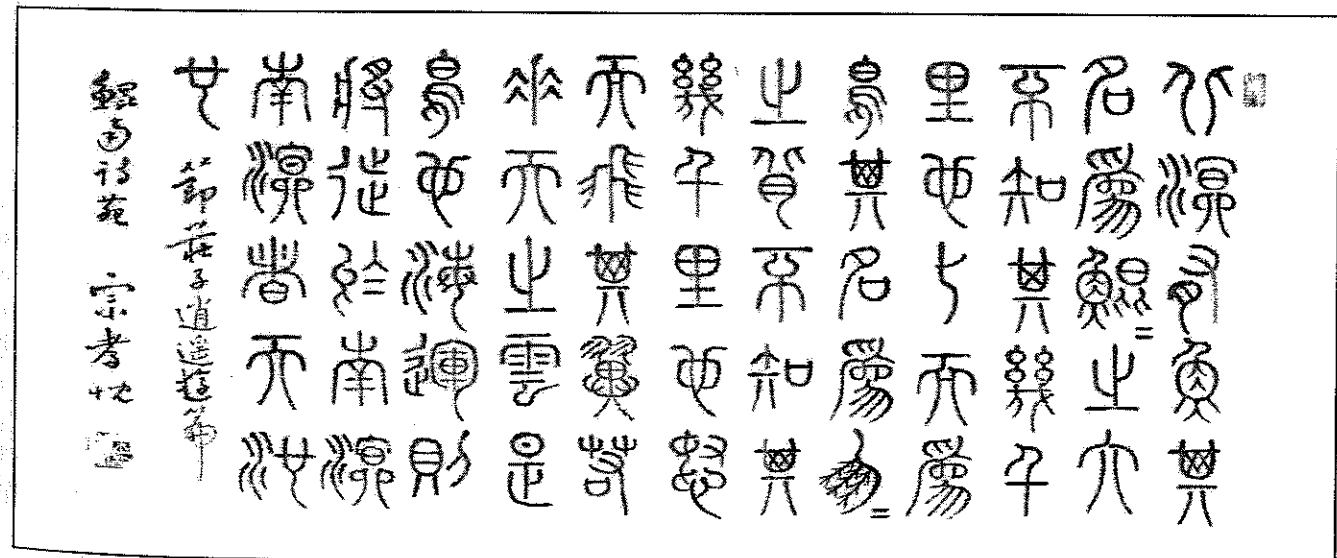 北溟有魚其
名爲鯤=之大
不知其幾千
里也化而爲
鳥其名爲鵬=
之背不知其
幾千里也怒
而飛其翼若
垂天之雲是
鳥也海運則
將徙於南溟
南溟者天池
也 節莊子逍遙遊篇
鯤南詩苑 宗孝忱